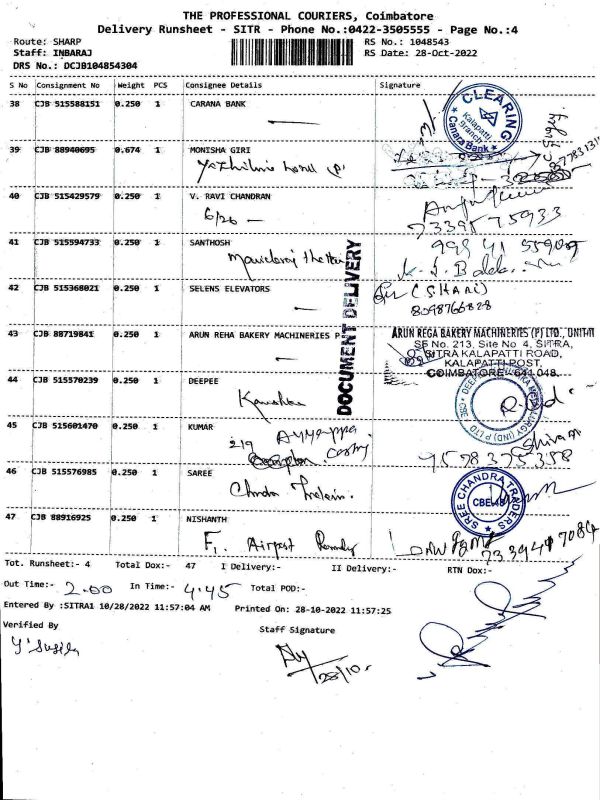 THE PROFESSIONAL COURIERS, Coimbatore
Delivery Runsheet - SITR - Phone No.:0422-3505555 - Page No.:4
Route: SHARP RS No.: 1048543
Staff: INBARAJ RS Date: 28-Oct-2022
DRS No.: DCJB104854304
S No Consignment No Weight PCS Consignee Details Signature
38 CJB 515588151 0.250 1 CARANA BANK
CLEARING
Kalapatti Branch
Canara Bank
39 CJB 88940695 0.674 1 MONISHA GIRI
40 CJB 515429579 0.250 1 V. RAVI CHANDRAN
6/26 -
73395 75933
41 CJB 515594733 0.250 1 SANTHOSH
42 CJB 515368021 0.250 1 SELENS ELEVATORS
(SHARI)
8098766828
DOCUMENT DELIVERY
43 CJB 88719841 0.250 1 ARUN REHA BAKERY MACHINERIES P
ARUN REGA BAKERY MACHINERIES (P) LTD., UNIT-II
SF No. 213, Site No 4, SITRA,
SITRA KALAPATTI ROAD,
KALAPATTI POST,
COIMBATORE - 641 048.
44 CJB 515570239 0.250 1 DEEPEE
45 CJB 515601470 0.250 1 KUMAR
219 Ayyappa
9578375358
46 CJB 515576985 0.250 1 SAREE
SREE CHANDRA TRADERS
CBE-48
47 CJB 88916925 0.250 1 NISHANTH
F, Airport
Tot. Runsheet:- 4 Total Dox:- 47 I Delivery:- II Delivery:- RTN Dox:-
Out Time:- 2.00 In Time:- 4.45 Total POD:-
Entered By :SITRA1 10/28/2022 11:57:04 AM Printed On: 28-10-2022 11:57:25
Verified By Staff Signature
28/10